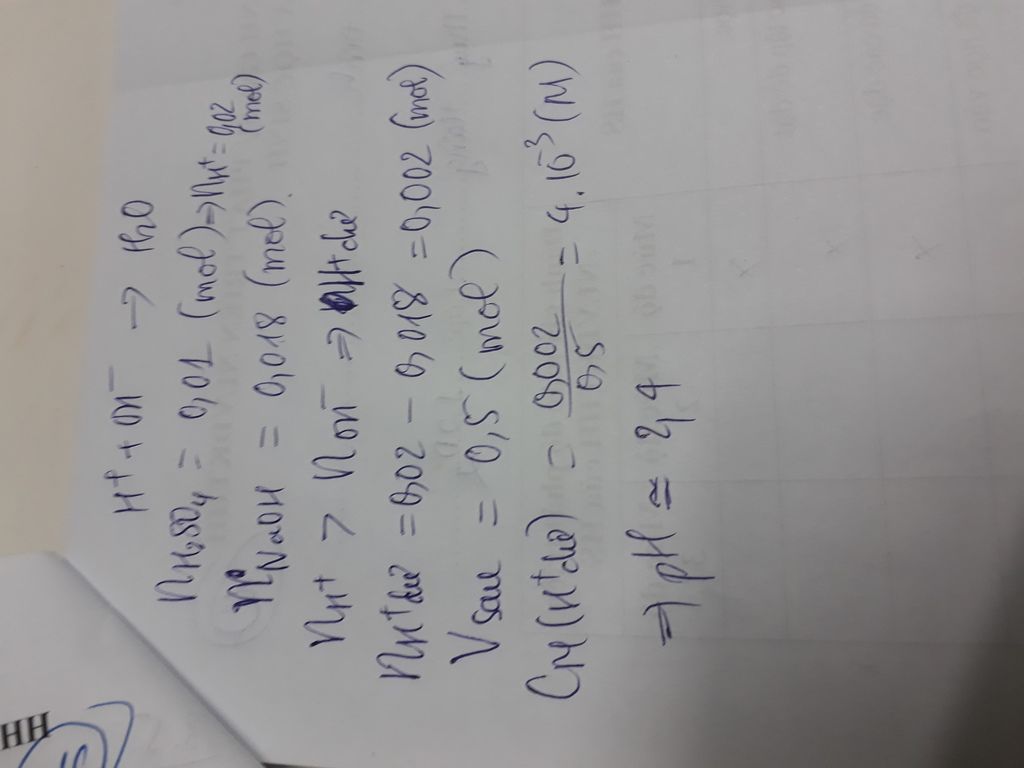 H⁺ + OH⁻ → H₂O
nH₂SO₄ = 0,01 (mol) ⇒ nH⁺ = 0,02 (mol)
nNaOH = 0,018 (mol).
nH⁺ > nOH⁻ ⇒ H⁺ dư
nH⁺dư = 0,02 - 0,018 = 0,002 (mol)
Vsau = 0,5 (mol)
CM(H⁺dư) = 0,002/0,5 = 4.10⁻³ (M)
⇒ pH ≃ 2,4
HH